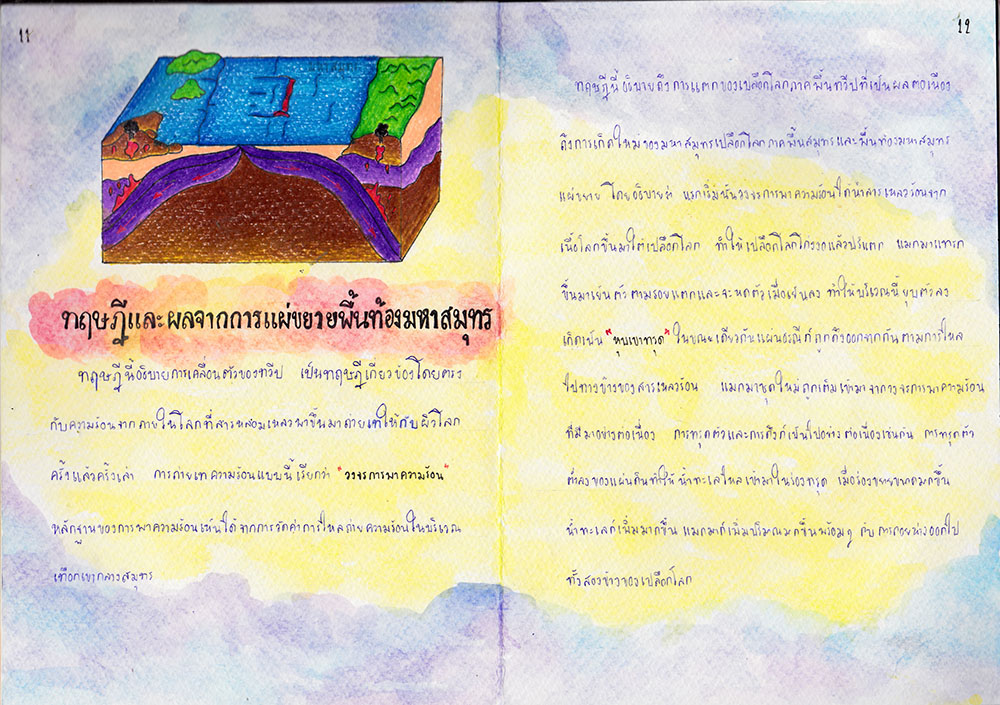 11
ทฤษฎีและผลจากการแผ่ขยายพื้นท้องมหาสมุทร
ทฤษฎีนี้อธิบายการเคลื่อนตัวของทวีป เป็นทฤษฎีเกี่ยวข้องโดยตรง
กับความร้อนจากภายในโลกที่สารหลอมเหลวพาขึ้นมาถ่ายเทให้กับผิวโลก
ครั้งแล้วครั้งเล่า การถ่ายเทความร้อนแบบนี้เรียกว่า "วงจรการพาความร้อน"
หลักฐานของการพาความร้อนเห็นได้จากการวัดค่าการไหลถ่ายความร้อนในบริเวณ
เทือกเขากลางสมุทร
12
ทฤษฎีนี้อธิบายถึงการแตกของเปลือกโลกภาคพื้นทวีปที่เป็นผลต่อเนื่อง
ถึงการเกิดใหม่ของมหาสมุทรเปลือกโลกภาคพื้นสมุทรและพื้นท้องมหาสมุทร
แผ่ขยาย โดยอธิบายว่า แรกเริ่มนั้นวงจรการพาความร้อนได้นำสารเหลวร้อนจาก
เนื้อโลกขึ้นมาใต้เปลือกโลก ทำให้เปลือกโลกโก่งงอแล้วปริแตก แมกมาแทรก
ขึ้นมาเย็นตัวตามรอยแตกและจะหดตัวเมื่อเย็นลง ทำให้บริเวณนี้ยุบตัวลง
เกิดเป็น "หุบเขาทรุด" ในขณะเดียวกันแผ่นธรณีก็ถูกดึงออกจากกันตามการไหล
ไปทางข้างของสารเหลวร้อน แมกมาชุดใหม่ถูกเติมเข้ามาจากวงจรการพาความร้อน
ที่มีมาอย่างต่อเนื่อง การทรุดตัวและการดึงก็เป็นไปอย่างต่อเนื่องเช่นกัน การทรุดตัว
ต่ำลงของแผ่นดินทำให้น้ำทะเลไหลเข้ามาในร่องทรุด เมื่อร่องขยายขนาดมากขึ้น
น้ำทะเลก็เพิ่มมากขึ้น แมกมาก็เพิ่มปริมาณมากขึ้นพร้อมๆ กับการถอยห่างออกไป
ทั้งสองข้างของเปลือกโลก